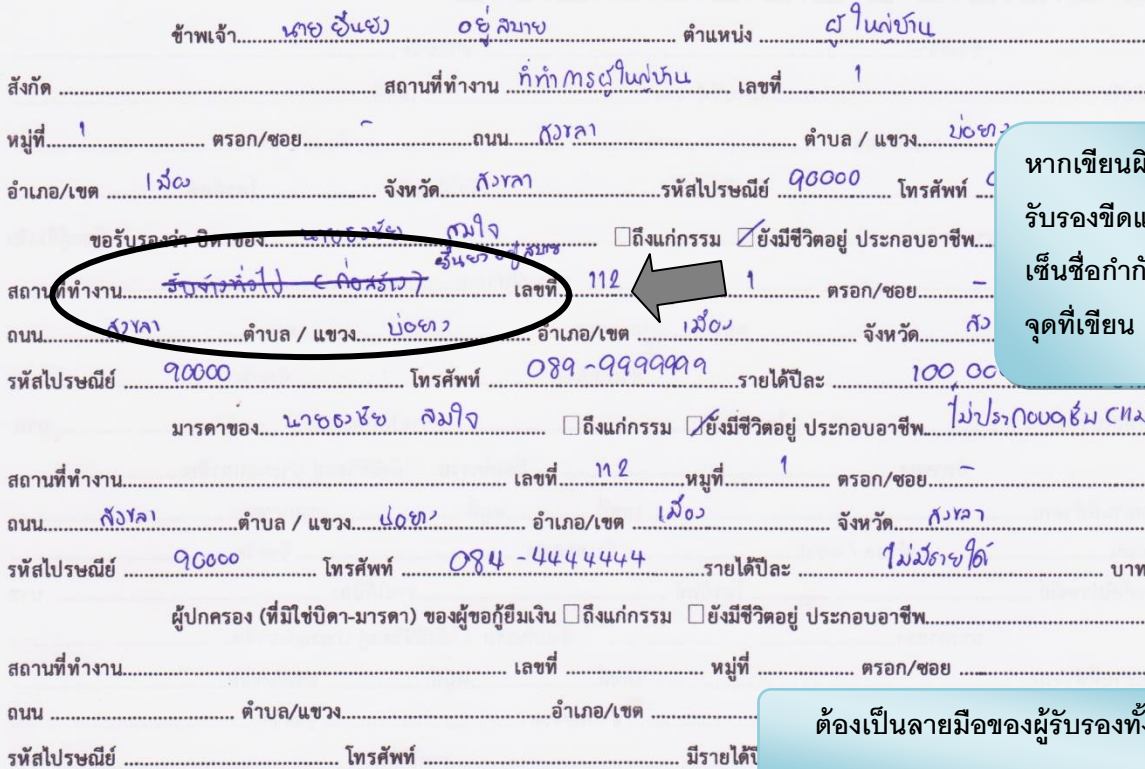 ข้าพเจ้า..... นาย ยืนยัง อยู่สบาย ..... ตำแหน่ง ..... ผู้ใหญ่บ้าน
สังกัด ..... สถานที่ทำงาน ที่ทำการผู้ใหญ่บ้าน เลขที่..... 1
หมู่ที่..... 1 ..... ตรอก/ซอย..... - ..... ถนน..... สงขลา ..... ตำบล / แขวง..... บ่อยาง
อำเภอ/เขต ..... เมือง ..... จังหวัด..... สงขลา .....รหัสไปรษณีย์ 90000 ..... โทรศัพท์
ขอรับรองว่า บิดาของ..... นายธงชัย สมใจ ..... ☐ถึงแก่กรรม ☑ยังมีชีวิตอยู่ ประกอบอาชีพ.....
ยืนยัง อยู่สบาย
สถานที่ทำงาน..... รับจ้างทั่วไป (ก่อสร้าง) ..... เลขที่..... 112 1 ..... ตรอก/ซอย..... -
ถนน..... สงขลา .....ตำบล / แขวง..... บ่อยาง ..... อำเภอ/เขต ..... เมือง ..... จังหวัด..... สง
รหัสไปรษณีย์ ..... 90000 ..... โทรศัพท์ ..... 089-9999999 .....รายได้ปีละ ..... 100,000
มารดาของ..... นายธงชัย สมใจ ..... ☐ถึงแก่กรรม ☑ยังมีชีวิตอยู่ ประกอบอาชีพ..... ไม่ประกอบอาชีพ
สถานที่ทำงาน..... เลขที่ ..... 112 .....หมู่ที่..... 1 ..... ตรอก/ซอย..... -
ถนน..... สงขลา .....ตำบล / แขวง..... บ่อยาง ..... อำเภอ/เขต ..... เมือง ..... จังหวัด..... สงขลา
รหัสไปรษณีย์ ..... 90000 ..... โทรศัพท์ ..... 084-4444444 .....รายได้ปีละ ไม่มีรายได้ ..... บาท
ผู้ปกครอง (ที่มิใช่บิดา-มารดา) ของผู้ขอกู้ยืมเงิน ☐ถึงแก่กรรม ☐ยังมีชีวิตอยู่ ประกอบอาชีพ.....
สถานที่ทำงาน..... เลขที่ ..... หมู่ที่ ..... ตรอก/ซอย .....
ถนน ..... ตำบล/แขวง.....อำเภอ/เขต .....
รหัสไปรษณีย์ ..... โทรศัพท์ ..... มีรายได้ปี
หากเขียนผิ
รับรองขีดแ
เซ็นชื่อกำกั
จุดที่เขียน
ต้องเป็นลายมือของผู้รับรองทั้ง